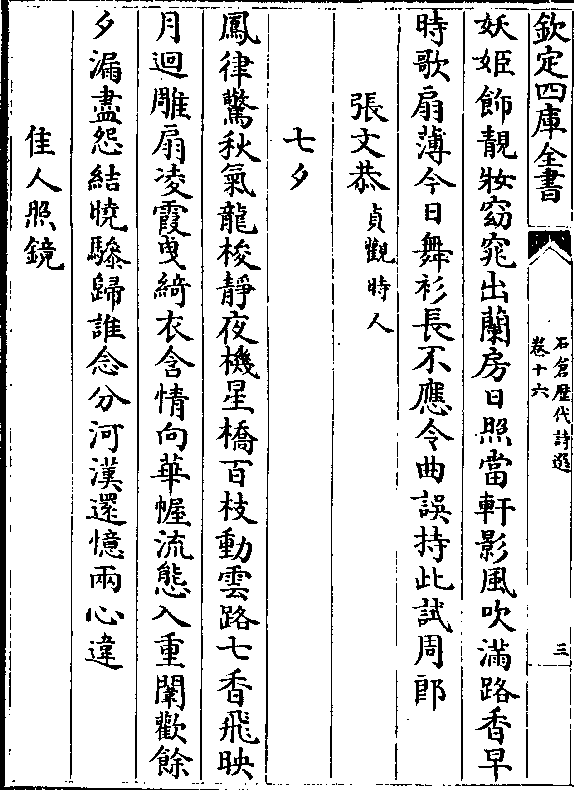 欽定四庫全書
石倉歷代詩選
卷十六
三
妖姬飾靚妝窈窕出蘭房日照當軒影風吹滿路香早
時歌扇薄今日舞衫長不應令曲誤持此試周郎
張文恭貞觀時人
七夕
鳳律驚秋氣龍梭靜夜機星橋百枝動雲路七香飛映
月迴雕扇凌霞曵綺衣含情向華幄流態入重闈歡餘
夕漏盡怨結曉驂歸誰念分河漢還憶兩心違
佳人照鏡